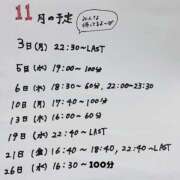 11月の予定
みんな
待ってるよー
3日(月) 22:30~LAST
5日(水) 19:00~100分
6日(木) 18:30~60分, 22:00-23:30
10日(月) 17:40~100分
13日(木) 16:00~60分
19日(水) 22:40~LAST
21日(金) 16:40~18:40, 22:40~LAST
26日(水) 16:30~100分